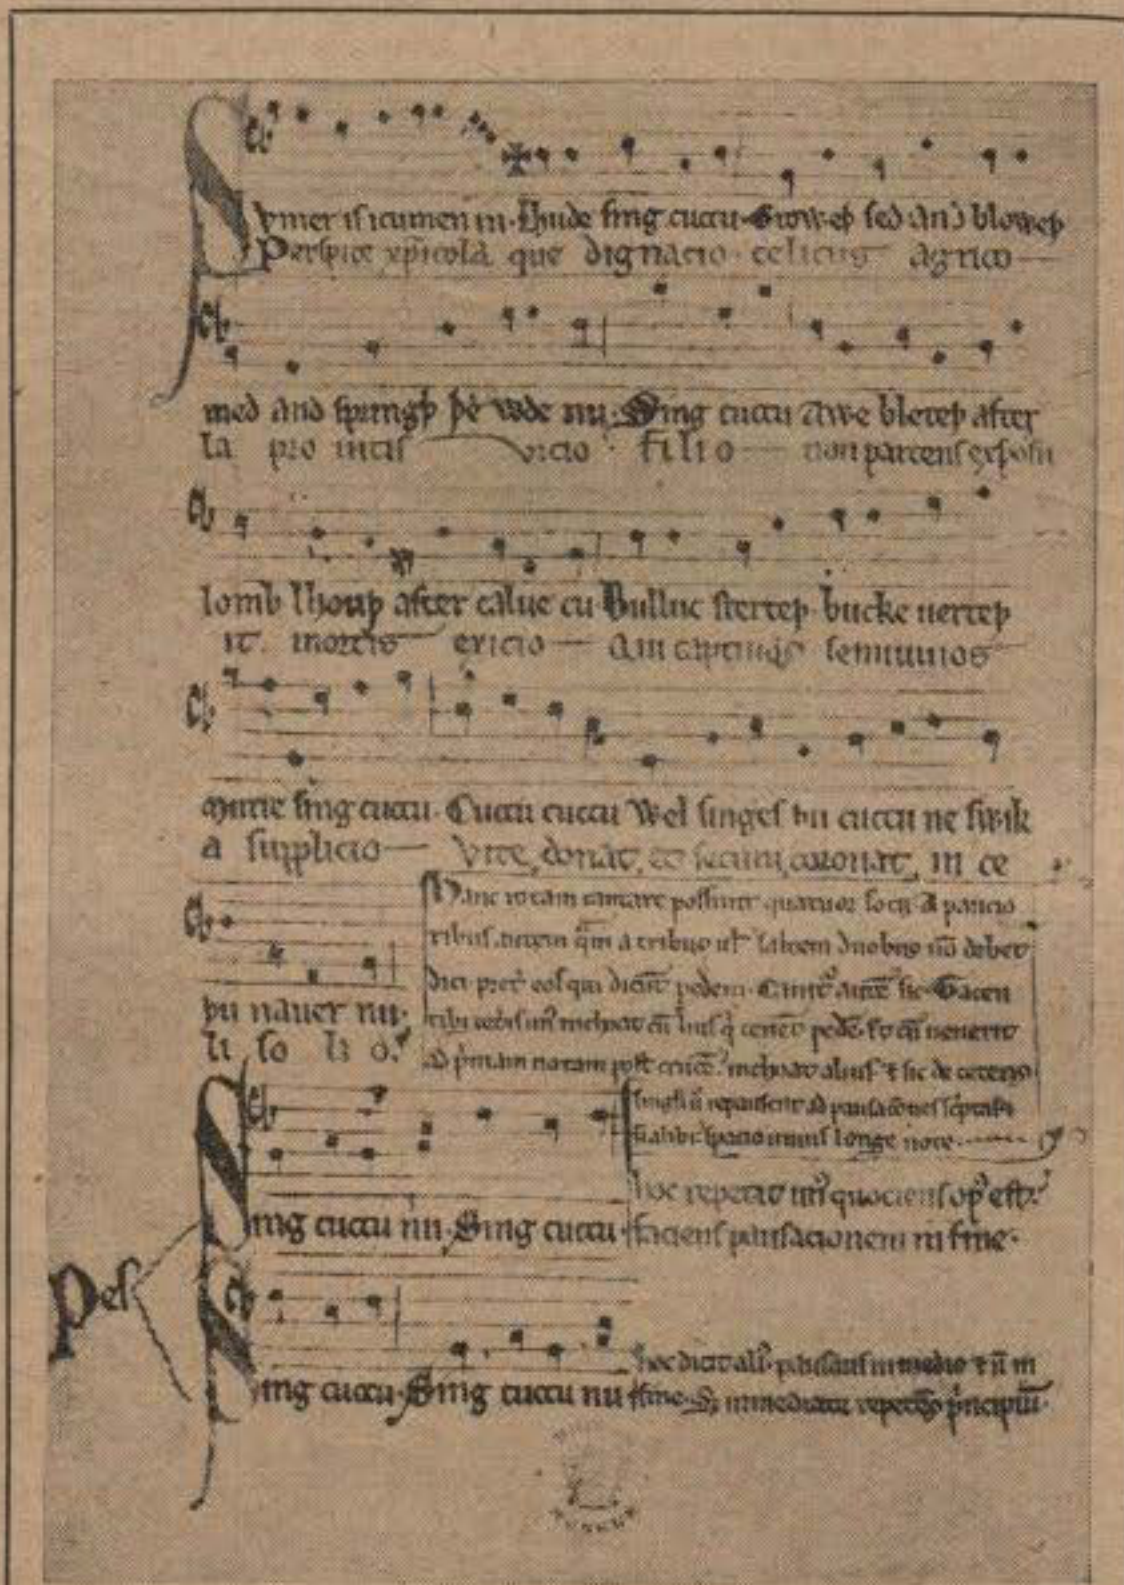 Svmer is icumen in. Lhude sing cuccu. Groweþ sed and bloweþ
Perspice xp̄icola que dignacio. celicus agrico
med and springþ þe wde nu. Sing cuccu Awe bleteþ after
la pro uitis vicio. filio non parcens exposu
lomb lhouþ after calue cu. Bulluc sterteþ. bucke uerteþ
it. mortis exicio Qui captiuos semiuiuos
murie sing cuccu. Cuccu cuccu Wel singes þu cuccu ne swik
a supplicio Vite donat, et secum coronat, in ce
þu nauer nu.
li so li o.
Hanc rotam cantare possunt quatuor socii. A paucio
ribus autem quā a tribus ul saltem duobus nō debet
dici. pret̓ eos qui dicūt pedem. Canit̉ autē sic. Tacen
tibȝ ceteris un̉ inchoat cū hiis q̇ tenēt pedē. Et cū uenerit
ad p̓mam notam post crucē. inchoat alius. ⁊ sic de ceteris
singli ū repausent ad pausacōnes sc̓ptas ⁊
n̄ alibi. spacio unius longe note.
Sing cuccu nu. Sing cuccu.
hoc repetit un̉ quociens op̉ est.
faciens pausacionem in fine.
Pes
Sing cuccu. Sing cuccu nu
hoc dicit alỉ. pausans in medio ⁊ n̄ in
fine. Sȝ immediate repetēs p̓ncipiū.